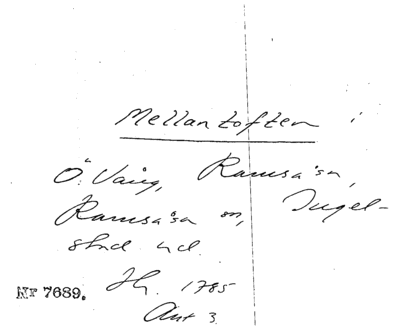 Mellantoften i
Ö. Vång, Ramsåsa,
Ramsåsa sn, Ingel-
stad hd.
Nr 7689. Jh. 1785
Akt 3